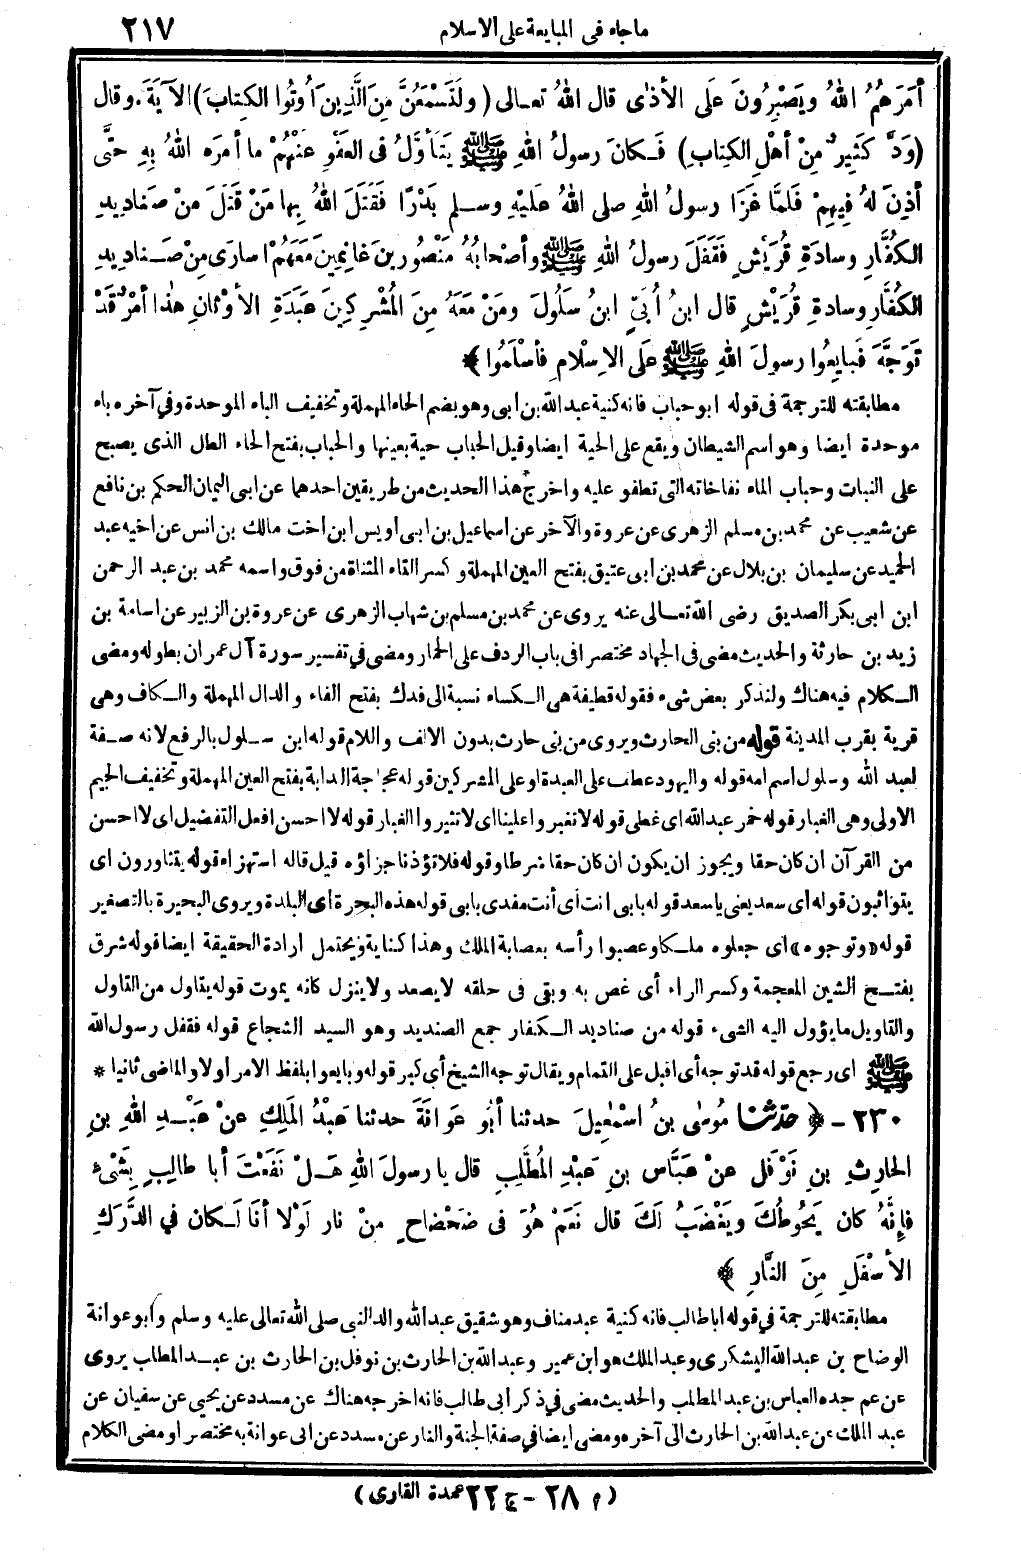 ماجاء فى المبايعة على الاسلام ٢١٧
أمَرَهُمُ اللهُ ويَصْبِرُونَ عَلَى الأذَى قال اللهُ تعالى (ولَتَسْمَعُنَّ مِنَ الَّذِينَ أُوتُوا الكِتابَ) الآيَةَ. وقال
(وَدَّ كَثِيرٌ مِنْ أهْلِ الكِتابِ) فَكانَ رسولُ اللهِ ﷺ يَتَأَوَّلُ فى العَفْوِ عَنْهُمْ ما أمَرَه اللهُ بِهِ حتَّى
أذِنَ لهُ فِيهِمْ فَلمَّا غَزَا رسولُ اللهِ صلى اللهُ عَلَيْهِ وسلم بَدْرًا فَقَتَلَ اللهُ بِها مَنْ قَتَلَ مِنْ صَنادِيدِ
الكُفَّارِ وسادَةِ قُرَيْشٍ فَقَفَلَ رسولُ اللهِ ﷺ وأصْحابُهُ مَنْصُورِينَ غانِمِينَ مَعَهُمْ اسارَى مِنْ صَنادِيدِ
الكُفَّارِ وسادةِ قُرَيْشٍ قال ابنُ أُبَيٍّ ابنُ سَلُولَ ومَنْ مَعَهُ مِنَ المُشْرِكِينَ عَبَدَةِ الأوْثانِ هذا أمْرٌ قَدْ
تَوَجَّهَ فَبايِعُوا رسولَ اللهِ ﷺ عَلَى الاِسْلامِ فأسْلَمُوا ﴾
مطابقته للترجمة فى قوله ابو حباب فانه كنية عبدالله بن ابى وهو بضم الحاء المهملة وتخفيف الباء الموحدة وفي آخره باء
موحدة ايضا وهو اسم الشيطان ويقع على الحية ايضا وقيل الحباب حية بعينها والحباب بفتح الحاء الطل الذى يصبح
على النبات وحباب الماء نفاخاته التى تطفو عليه واخرج هذا الحديث من طريقين احدهما عن ابى اليمان الحكم بن نافع
عن شعيب عن محمد بن مسلم الزهرى عن عروة والآخر عن اسماعيل بن ابى أويس ابن اخت مالك بن انس عن اخيه عبد
الحميد عن سليمان بن بلال عن محمد بن ابى عتيق بفتح العين المهملة وكسر التاء المثناة من فوق واسمه محمد بن عبد الرحمن
ابن ابى بكر الصديق رضى الله تعالى عنه يروى عن محمد بن مسلم بن شهاب الزهرى عن عروة بن الزبير عن اسامة بن
زيد بن حارثة والحديث مضى فى الجهاد مختصرا فى باب الردف على الحمار ومضى في تفسير سورة آل عمران بطوله ومضى
الكلام فيه هناك ولنذكر بعض شىء فقوله قطيفة هى الكساء نسبة الى فدك بفتح الفاء والدال المهملة والكاف وهى
قرية بقرب المدينة قوله من بنى الحارث ويروى من بنى حارث بدون الالف واللام قوله ابن سلول بالرفع لانه صفة
لعبد الله وسلول اسم امه قوله واليهود عطف على العبدة او على المشركين قوله عجاجة الدابة بفتح العين المهملة وتخفيف الجيم
الاولى وهى الغبار قوله خمر عبدالله اى غطى قوله لا تغبروا علينا اى لا تثيروا الغبار قوله لا احسن افعل التفضيل اى لا احسن
من القرآن ان كان حقا ويجوز ان يكون ان كان حقا شرطا وقوله فلا تؤذنا جزاؤه قيل قاله استهزاء قوله يتثاورون اى
يتواثبون قوله اى سعد يعنى ياسعد قوله بابى انت أى أنت مفدى بابى قوله هذه البحرة اى البلدة ويروى البحيرة بالتصغير
قوله «وتوجوه» اى جعلوه ملكا وعصبوا رأسه بعصابة الملك وهذا كناية ويحتمل ارادة الحقيقة ايضا قوله شرق
بفتح الشين المعجمة وكسر الراء أى غص به وبقى فى حلقه لا يصعد ولا ينزل كانه يموت قوله يتاول من التاول
والتاويل ما يؤول اليه الشىء قوله من صناديد الكفار جمع الصنديد وهو السيد الشجاع قوله فقفل رسول الله
ﷺ اى رجع قوله قد توجه أى اقبل على التمام ويقال توجه الشيخ أى كبر قوله وبايعوا بلفظ الامر اولا والماضى ثانيا *
٢٣٠ - ﴿ حدثنا مُوسَى بنُ اسْمعِيلَ حدثنا أبُو عَوانَةَ حدثنا عَبْدُ المَلِكِ عنْ عَبْدِ اللهِ بنِ
الحارِثِ بنِ نَوْفَلٍ عنْ عَبَّاسِ بنِ عَبْدِ المُطَّلِبِ قال يا رسولَ اللهِ هَلْ نَفَعْتَ أبا طالِبٍ بِشَىْءٍ
فإِنَّهُ كان يَحُوطُكَ ويَغْضَبُ لَكَ قال نَعَمْ هُوَ فى ضَحْضاحٍ مِنْ نار لَوْلا أنَا لَكان في الدَّرَكِ
الأسْفَلِ مِنَ النَّارِ ﴾
مطابقته للترجمة في قوله ابا طالب فانه كنية عبد مناف وهو شقيق عبدالله والد النبى صلى الله تعالى عليه وسلم وابو عوانة
الوضاح بن عبدالله اليشكرى وعبد الملك هو ابن عمير وعبدالله بن الحارث بن نوفل بن الحارث بن عبد المطلب يروى
عن عم جده العباس بن عبد المطلب والحديث مضى في ذكر ابى طالب فانه اخرجه هناك عن مسدد عن يحيى عن سفيان عن
عبد الملك عن عبدالله بن الحارث الى آخره ومضى ايضا في صفة الجنة والنار عن مسدد عن ابى عوانة به مختصرا ومضى الكلام
(م ٢٨ - ج ٢٢ عمدة القارى)